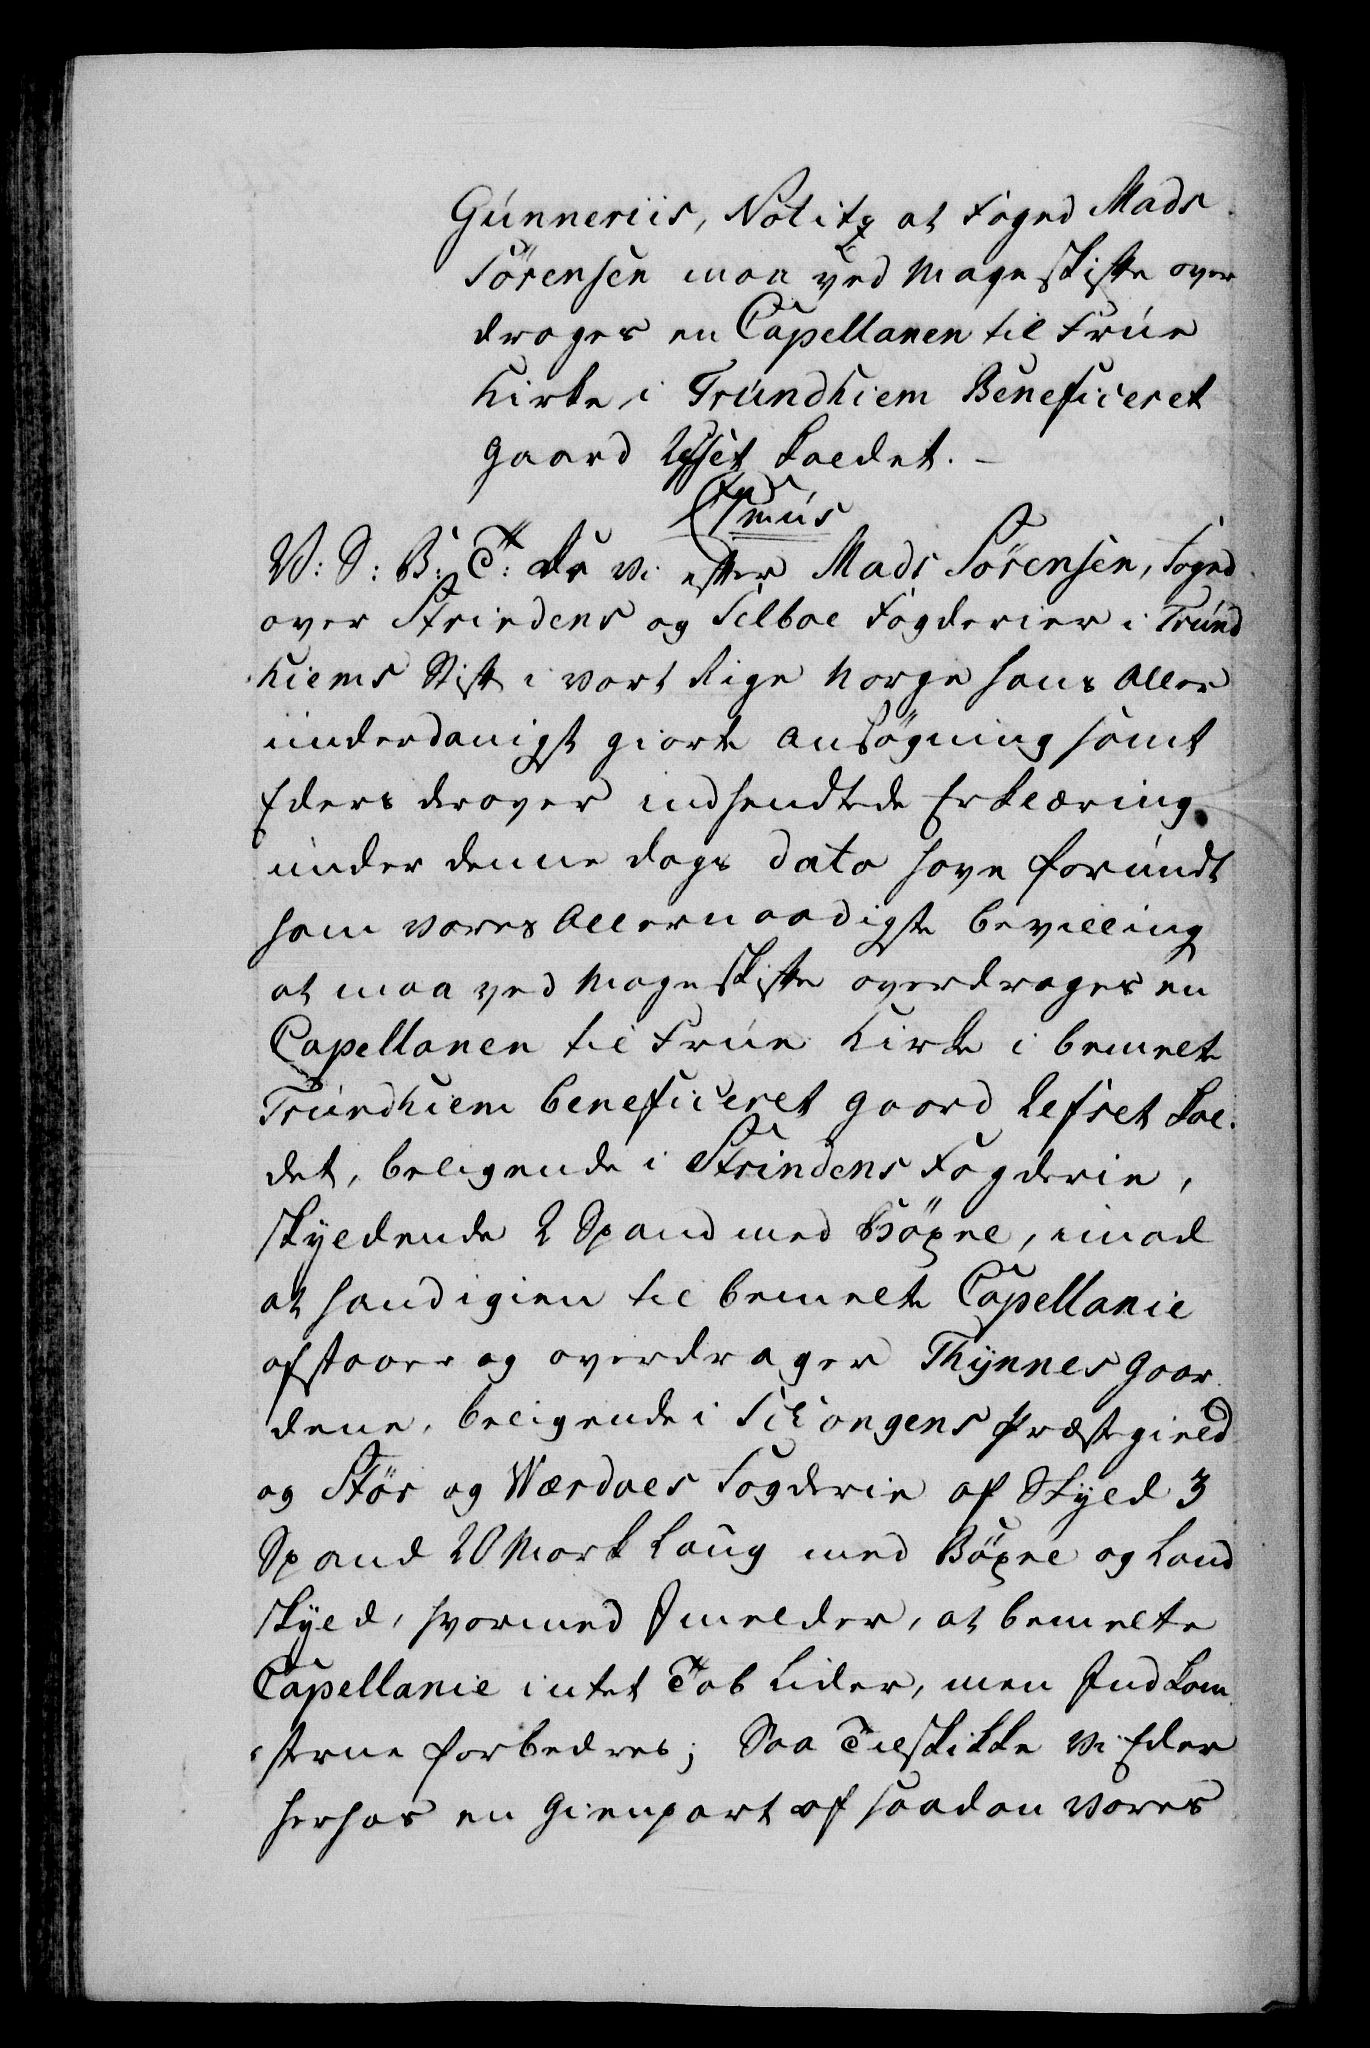 Gunneriis, Notitz at Foged Mads
Sörensen maa ved Mageskifte over
drages en Capellanen til Frue
Kirke i Trundhiem Beneficeret
Gaard Lefset kaldet. –
Chr: 7mus
V: S: B: T: Da vi efter Mads Sörensen, Foged
over Strindens og Selboe Fogderier i Trund
hiems Stift i vort Rige Norge hans Aller
underdanigst giorte Ansögning samt
Eders derover indsendtde Erklæring
under denne dags dato have forundt
ham vores Allernaadigste bevilling
at maa ved Mageskifte overdrages en
Capellanen til Frue Kirke i bemelte
Trundhiem beneficeret gaard Lefset kal-
det, beligende i Strindens Fogderie,
Skyldende 2 Spand med Böxel, imod
at hand igien til bemelte Capellanie
afstaaer og overdrager Thynnes Gaar
dene, beligende i Schongens Præstegield
og Stör og Værdals Fogderie af Skyld 3
Spand 20 Mark Laug med Böxel og Land
skyld, hvormed I melder, at bemelte
Capellanie intet Tab Lider, men Indkom
sterne forbedres; Saa Tilskikke vi Eder
herhos en Gienpart af saadan vores